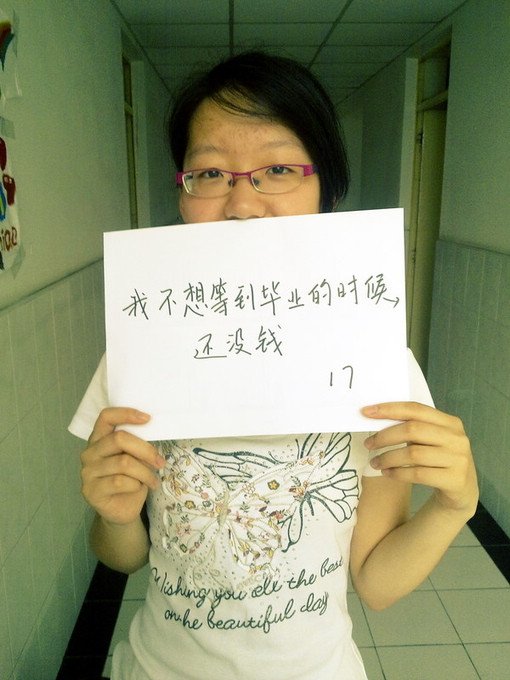 我不想等到毕业的时候,
还没钱
17
Wishing you all the best
on the beautiful day